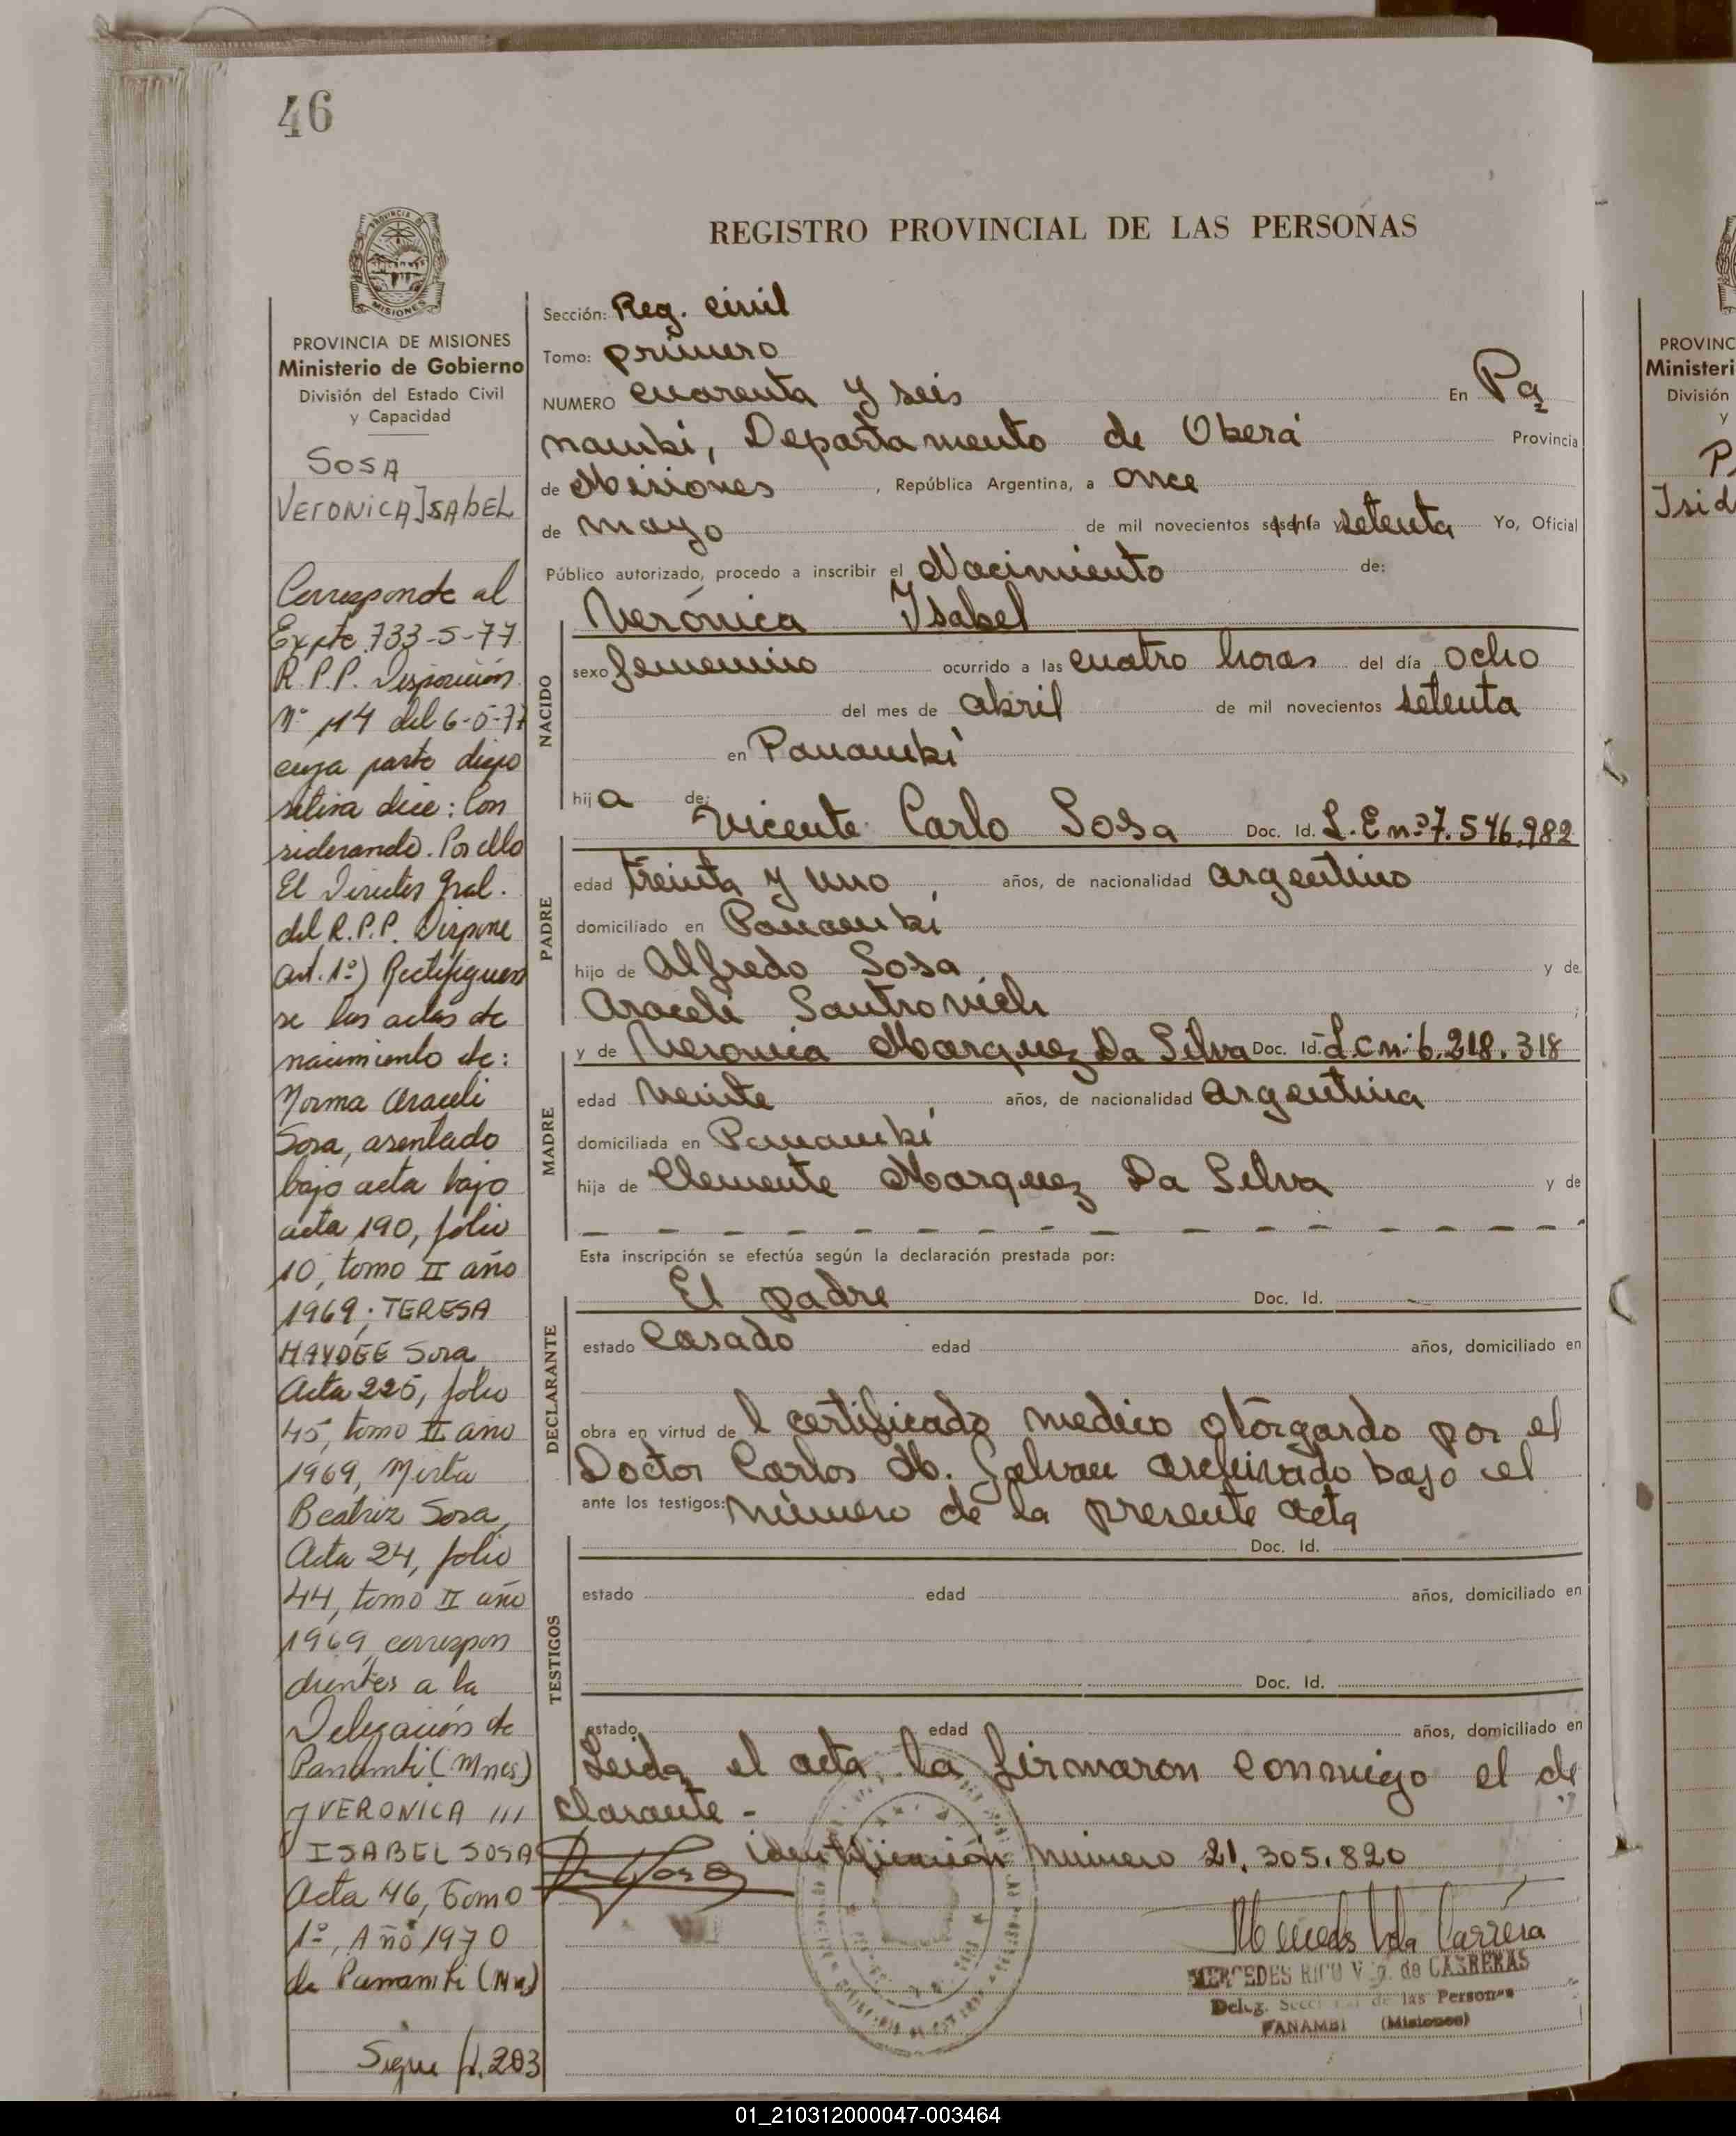 46
REGISTRO PROVINCIAL DE LAS PERSONAS
PROVINCIA DE MISIONES
Ministerio de Gobierno
División del Estado Civil
y Capacidad
SOSA
VERONICA ISABEL
Corresponde al
Expte 733-S-77
R.P.P. Disposición
Nº 114 del 6-5-77
cuya parte dispo
sitiva dice: Con
siderando. Por ello
El Director Gral.
del R.P.P. Dispone
art. 1º) Rectifiquen
se las actas de
nacimiento de:
Norma Araceli
Sosa, asentado
bajo acta bajo
acta 190, folio
10, tomo II año
1969; TERESA
HAYDÉE Sosa
Acta 225, folio
45, tomo II año
1969, Mirta
Beatriz Sosa,
Acta 24, folio
44, tomo II año
1969, correspon
dientes a la
Delegación de
Panambi (Mnes)
y VERONICA ///
ISABEL SOSA
Acta 46, Tomo
1º, Año 1970
de Panambi (Mn.)
Sigue fl. 203
Sección: Reg. civil
Tomo: primero
NUMERO cuarenta y seis En Pa
nambí, Departamento de Oberá Provincia
de Misiones, República Argentina, a once
de mayo de mil novecientos sesenta y setenta Yo, Oficial
Público autorizado, procedo a inscribir el Nacimiento de:
Verónica Ysabel
NACIDO
sexo femenino ocurrido a las cuatro horas del día ocho
del mes de abril de mil novecientos setenta
en Panambí
hija de:
Vicente Carlo Sosa Doc. Id. L.E nº 7.546.982
PADRE
edad treinta y uno, años, de nacionalidad argentino
domiciliado en Panambí
hijo de Alfredo Sosa y de
Araceli Santrovich ;
y de Veronica Marquez Da Silva Doc. Id. L.C n: 6.218.318
MADRE
edad veinte años, de nacionalidad argentina
domiciliada en Panambí
hija de Clemente Marquez Da Silva y de
Esta inscripción se efectúa según la declaración prestada por:
El padre Doc. Id.
DECLARANTE
estado Casado edad años, domiciliado en
obra en virtud de l certificado medico otorgardo por el
Doctor Carlos M. Galvan archivado bajo el
ante los testigos: número de la presente acta
Doc. Id.
TESTIGOS
estado edad años, domiciliado en
Doc. Id.
estado edad años, domiciliado en
Leida el acta, la firmaron conmigo el de
clarante -
identificación número 21.305.820
MERCEDES RICO V de CARRERAS
Deleg. de las Personas
PANAMBI (Misiones)
PROVINC
Ministeri
División
y
Isid
01_210312000047-003464